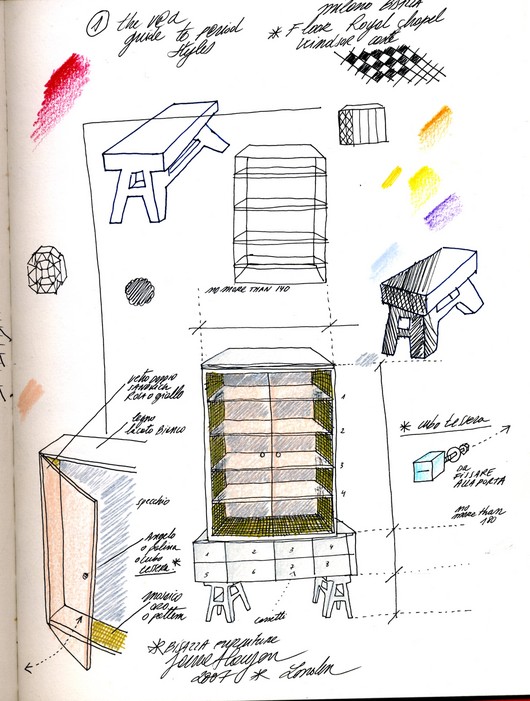 1 the V&A
guide to period
styles
milano Bisazza
* Floor Royal chapel
Windsor castle
no more than 140
vetro doppio
Rosa o giallo
legno
laccato Bianco
specchio
Angelo
o pallina
o cubo
tessera *
mosaico
oro
o platino
1
2
3
4
1 2 3 4
5 6 7 8
cassetti
* cubo tessera
da
fissare
alla porta
no
more than
180
* Bisazza furniture
Jaime Hayon
2007 * London